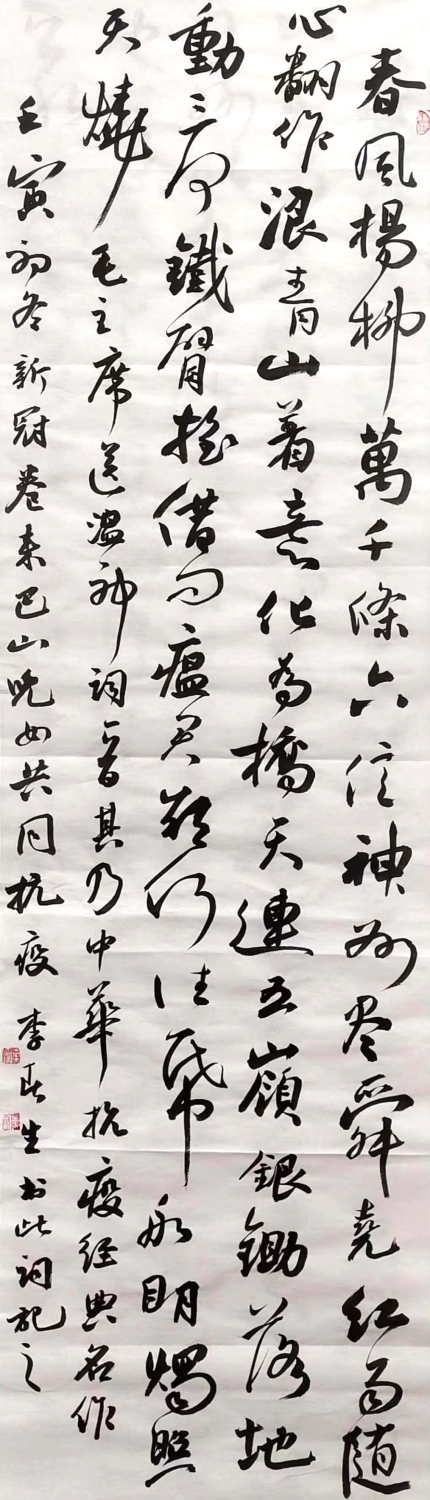 春风楊柳萬千條六億神州尽舜堯红雨随
心翻作浪青山着意化為橋天連五嶺銀鋤落地
動三河鐵臂摇借问瘟君欲何往帋船明燭照
天燒 毛主席送瘟神词一首其乃中華抗疫经典名作
壬寅初冬新冠卷来巴山晚共同抗疫 李生书此词记之